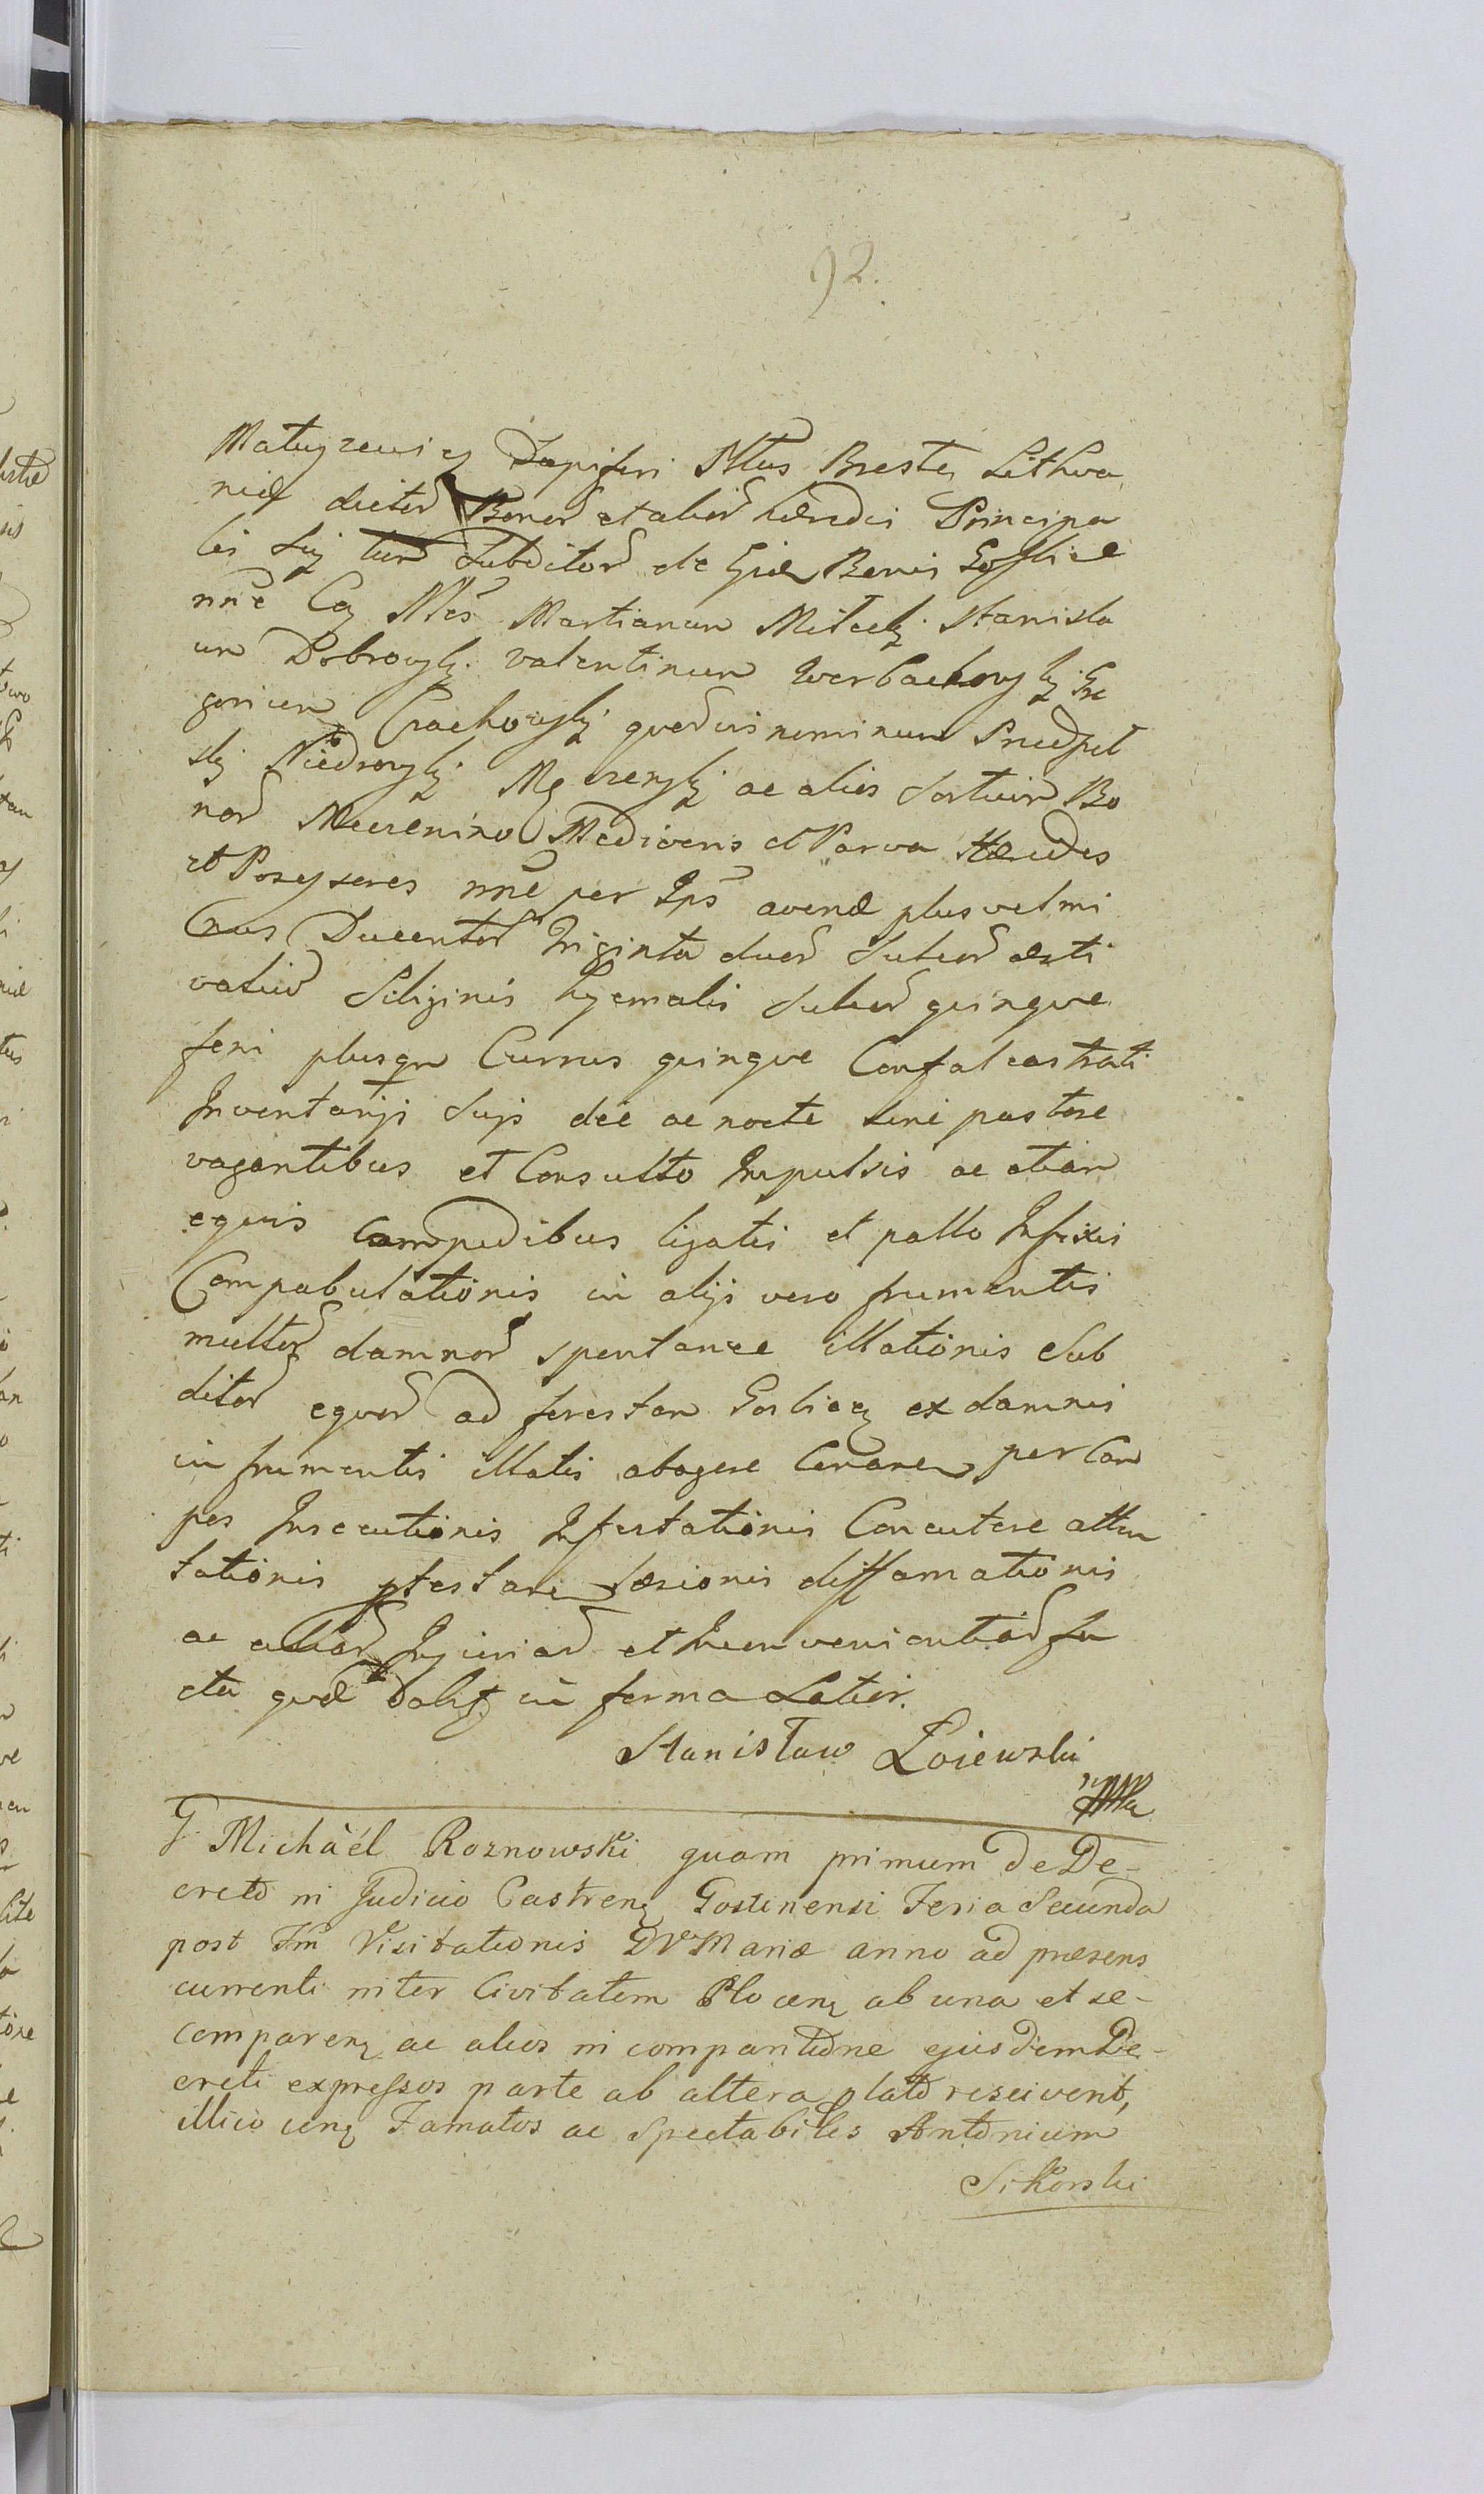 92.
Matuszewicz Dapiferi Pltus Brestę Lithva
niæ dictoꝝ Bonoꝝ et alioꝝ hæredis Principa
lis sui tuꝝ Subditoꝝ de Bonis Goślice
nne Coꝫ Nles Martianum Milecki Stanisla
um Dobrowski Valentinum Werbachowski Gre
gorium Crachowski quovis nominum
Niedrowski ac alios Sortium Bo
noꝝ Mierzenino Mediocris et Parva Hæredes
et Possessores nne per Ips avenæ plus vel mi
nus Ducentoꝝ triginta duoꝝ Sulcoꝝ æsti
vatiuꝝ Siliginis hyemalis Sulcoꝝ quinque
feni plusqm Currus quinque Confalcastrati
Inventarijs Suis die ac nocte sine pastore
vagantibus et Consulto Impulsis ac etiam
equis Compedibus ligatis et pallo Infixis
Compabulationis in alijs vero frumentis
multoꝝ damnoꝝ spontanee illationis Sub
ditoꝝ equoꝝ ad forestam Goslicę ex damnis
in frumentis illatis abagere Conanem per Cam
pos Insecutionis Infestationis Concutere atten
tationis ptestare læsionis diffamationis
ac aliaꝝ Injuriaꝝ et Inconvenientiaꝝ fa
cta quæ in forma Latior.
Stanisław Łoiewski
G. Michaël Roznowski quam primum de De-
creto in Judicio Castrenꝫ Gostinensi Feria Secunda
post Fm Visitationis BVMariæ anno ad præsens
currenti inter Civitatem Plocenꝫ ab una et se-
comparenꝫ ac alios in comparitione ejusdem De-
creti expressos parte ab altera plato rescivent,
illico cenꝫ Famatos ac Spectabiles Antonium
Sikorski